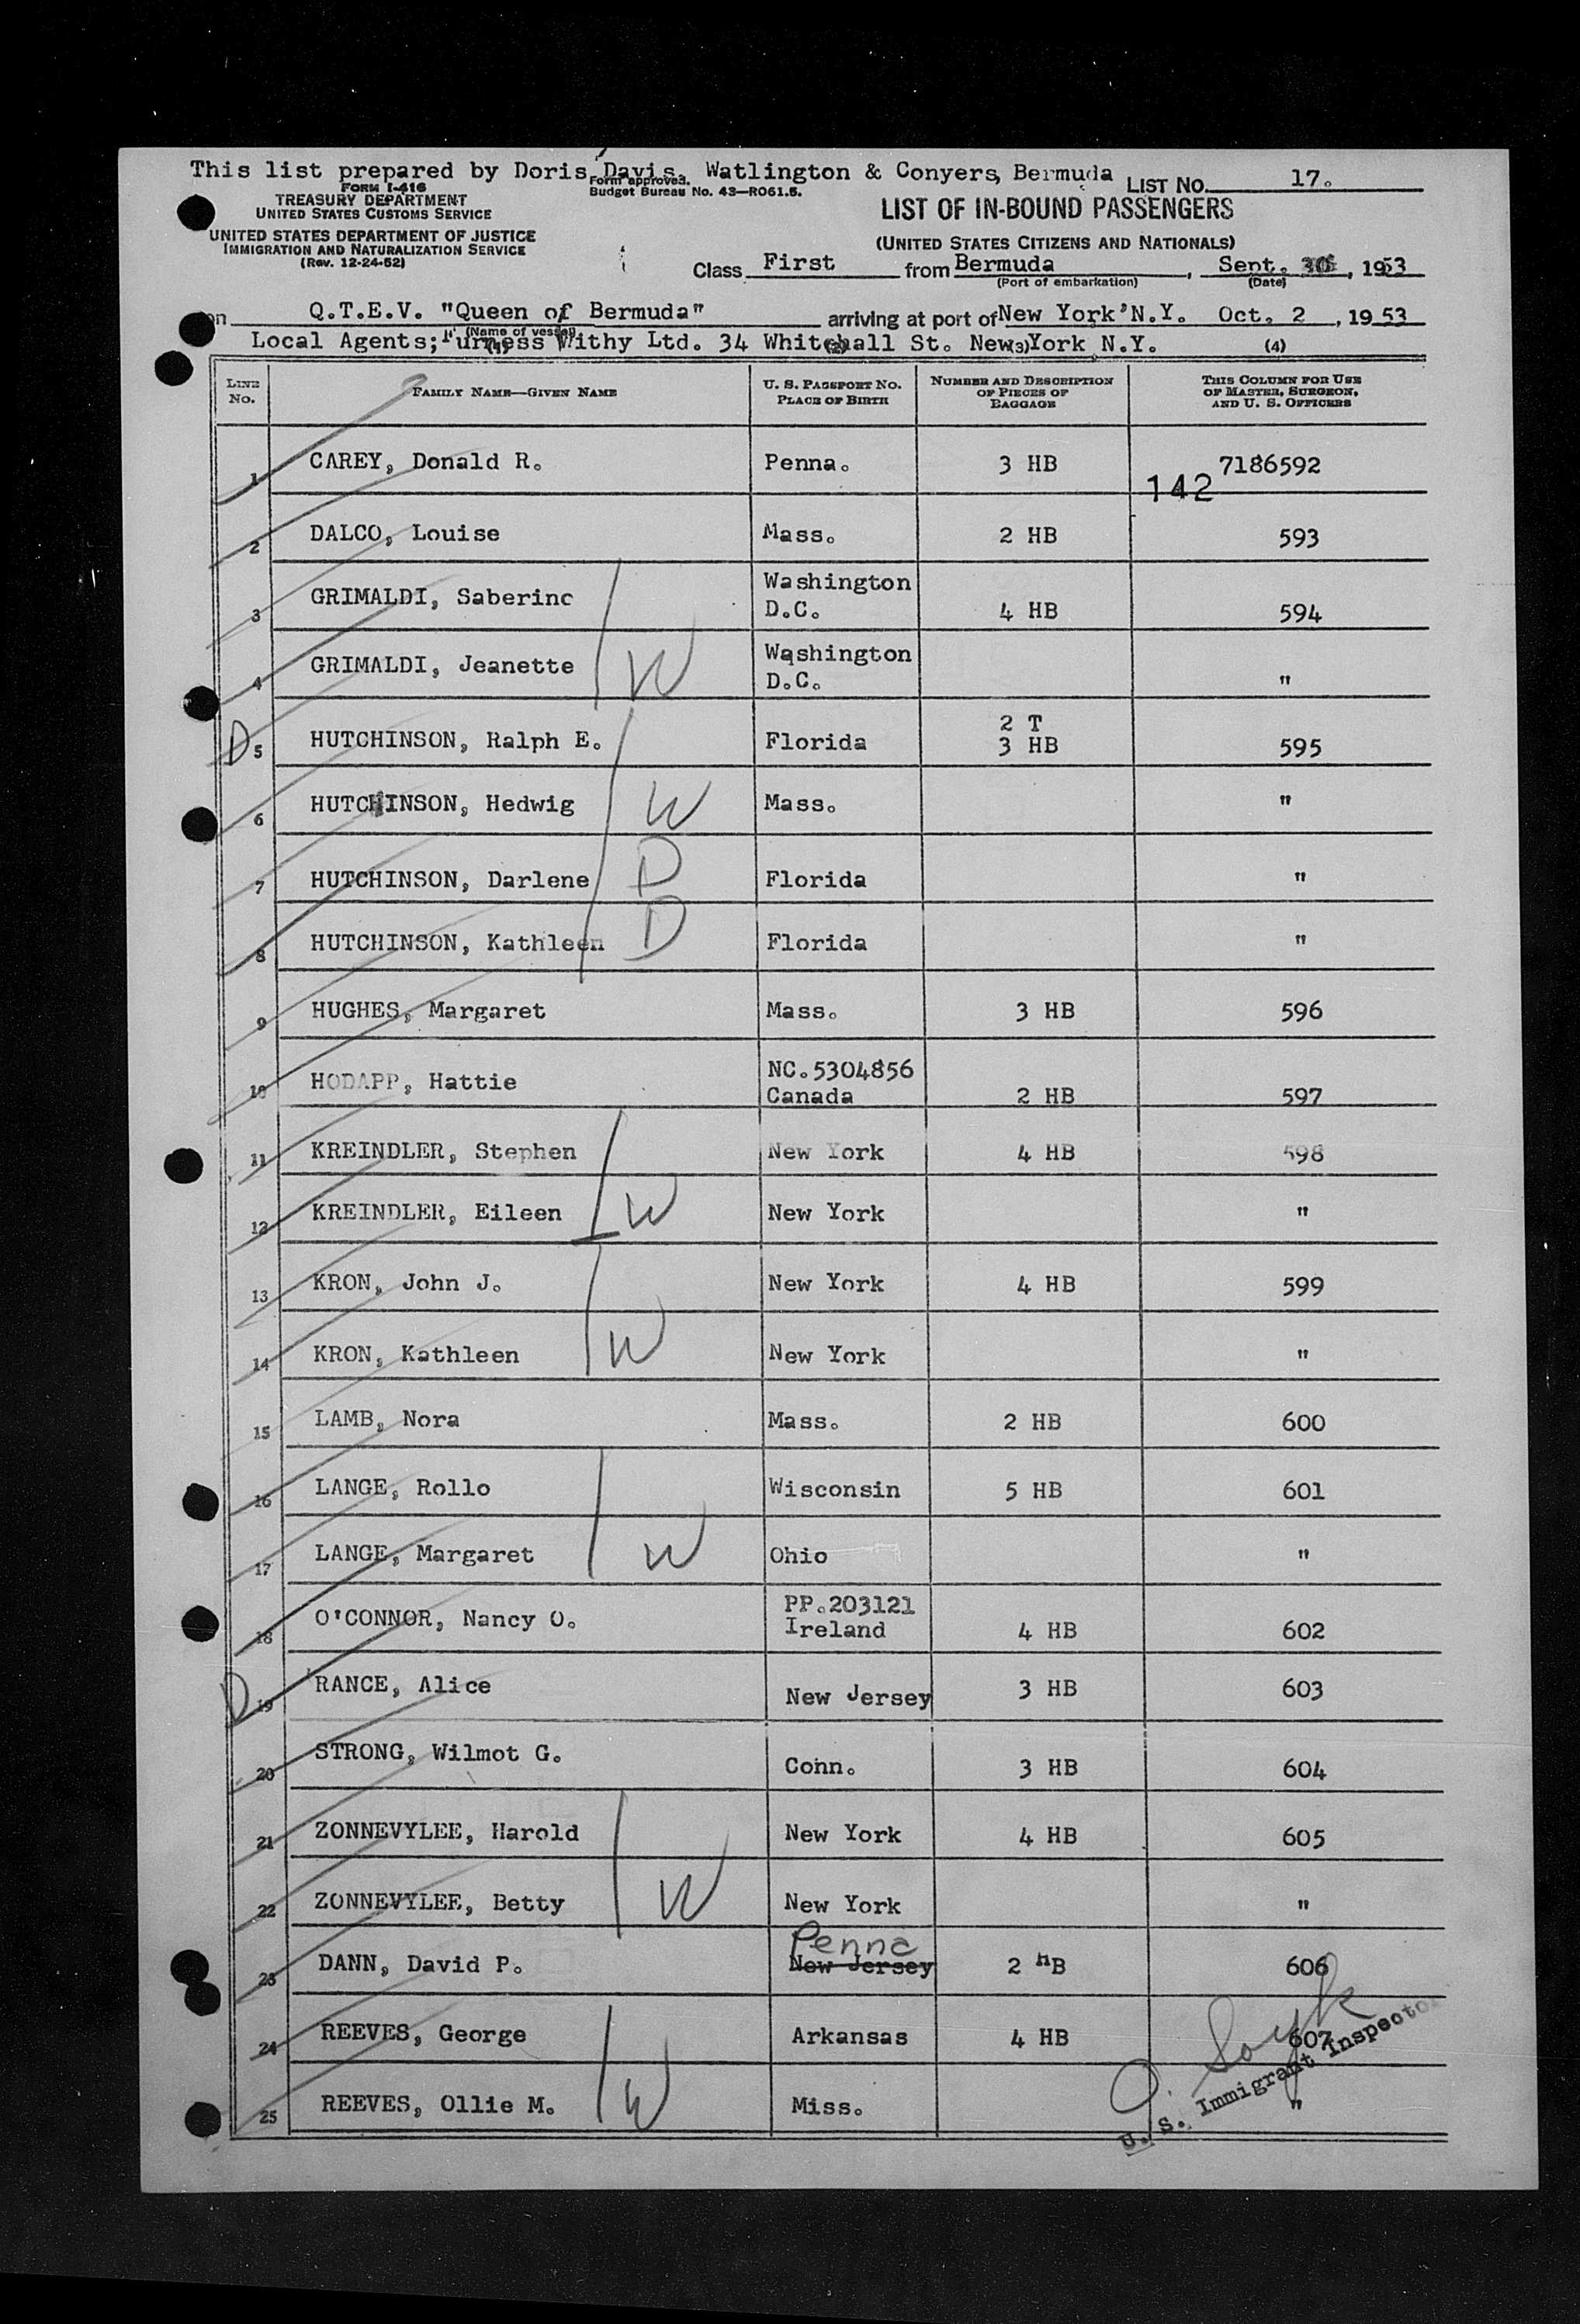 This list prepared by Doris Davis, Watlington & Conyers, Bermuda
Form approved.
Budget Bureau No. 43—RO61.5.
LIST NO. 17.
FORM I-416
TREASURY DEPARTMENT
UNITED STATES CUSTOMS SERVICE
UNITED STATES DEPARTMENT OF JUSTICE
IMMIGRATION AND NATURALIZATION SERVICE
(Rev. 12-24-52)
LIST OF IN-BOUND PASSENGERS
(UNITED STATES CITIZENS AND NATIONALS)
Class First from Bermuda, Sept. 30, 1953
(Port of embarkation) (Date)
on Q.T.E.V. "Queen of Bermuda" arriving at port of New York'N.Y. Oct. 2, 1953
(Name of vessel)
Local Agents; Furness Withy Ltd. 34 Whitehall St. New York N.Y.
(1) (2) (3) (4)
LINE No. FAMILY NAME—GIVEN NAME U. S. PASSPORT NO. PLACE OF BIRTH NUMBER AND DESCRIPTION OF PIECES OF BAGGAGE THIS COLUMN FOR USE OF MASTER, SURGEON, AND U. S. OFFICERS
1 CAREY, Donald R. Penna. 3 HB 7186592
142
2 DALCO, Louise Mass. 2 HB 593
3 GRIMALDI, Saberino Washington D.C. 4 HB 594
4 GRIMALDI, Jeanette W Washington D.C. "
D 5 HUTCHINSON, Ralph E. Florida 2 T 3 HB 595
6 HUTCHINSON, Hedwig W Mass. "
7 HUTCHINSON, Darlene D Florida "
8 HUTCHINSON, Kathleen D Florida "
9 HUGHES, Margaret Mass. 3 HB 596
10 HODAPP, Hattie NC.5304856 Canada 2 HB 597
11 KREINDLER, Stephen New York 4 HB 598
12 KREINDLER, Eileen W New York "
13 KRON, John J. New York 4 HB 599
14 KRON, Kathleen W New York "
15 LAMB, Nora Mass. 2 HB 600
16 LANGE, Rollo Wisconsin 5 HB 601
17 LANGE, Margaret W Ohio "
18 O'CONNOR, Nancy O. PP.203121 Ireland 4 HB 602
D 19 RANCE, Alice New Jersey 3 HB 603
20 STRONG, Wilmot G. Conn. 3 HB 604
21 ZONNEVYLEE, Harold New York 4 HB 605
22 ZONNEVYLEE, Betty W New York "
Penna
23 DANN, David P. New Jersey 2 HB 606
24 REEVES, George Arkansas 4 HB 607
25 REEVES, Ollie M. W Miss. "
U. S. Immigrant Inspector